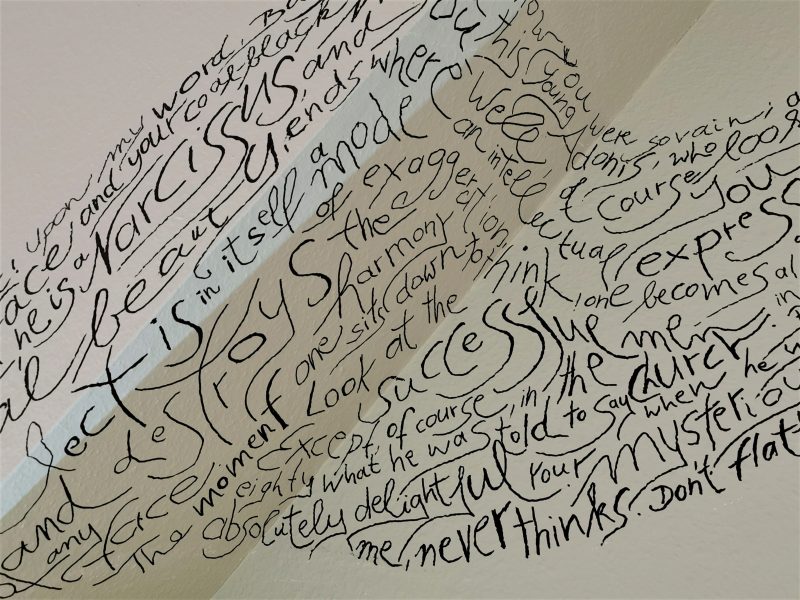 upon my word, Ba
ace, and your coal-black
ou were so vain; a
this young Adonis, who looks
he is a Narcissus, and
Well, of course you
al beauty, ends where an intellectual express
lect is in itself a mode of exaggeration,
and destroys the harmony
of any face. The moment one sits down to think, one becomes al
Look at the successful men in
Except, of course, in the Church.
eighty what he was told to say when he w
absolutely delightful. Your mysteriou
me, never thinks. Don't flat